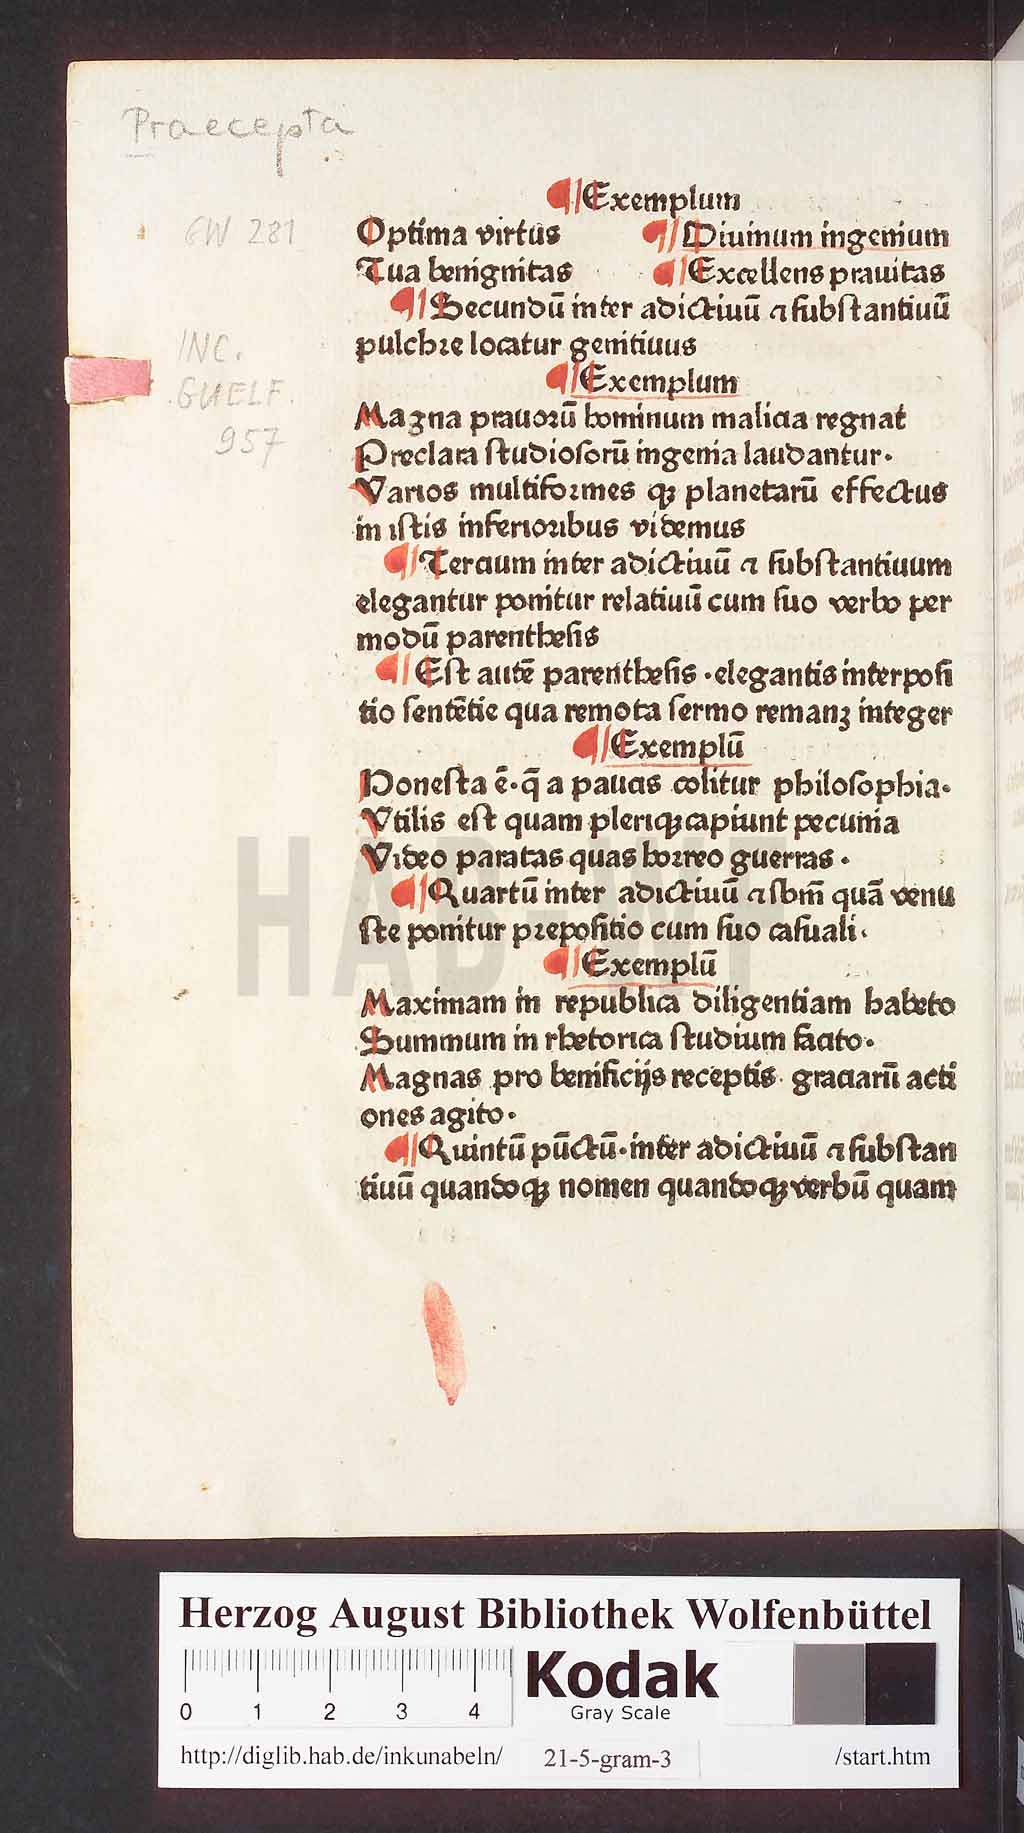 Praecepta
¶ Exemplum
GW 281
Optima virtus ¶ Diuinum ingenium
Tua benignitas ¶ Excellens prauitas
¶ Secundū inter adictiuū ⁊ ſubſtantiuū
pulchꝛe locatur genitiuus
INC.
GUELF.
957
¶ Exemplum
Magna prauoꝛū hominum malicia regnat
Preclara ſtudioſorū ingenia laudantur.
Varios multifoꝛmes qꝫ planetarū effectus
in iſtis inferioꝛibus videmus
¶ Tercium inter adictiuū ⁊ ſubſtantiuum
elegantur ponitur relatiuū cum ſuo verbo per
modū parentheſis
¶ Eſt autē parentheſis · elegantis interpoſi
tio ſentētie qua remota ſermo remanꝫ integer
¶ Exemplū
Honeſta ē · q̄ a paucis colitur philoſophia·
Vtilis eſt quam pleriqꝫ capiunt pecunia
Video paratas quas hoꝛreo guerras ·
¶ Quartū inter adictiuū ⁊ ſbm̄ quā venu
ſte ponitur pꝛepoſitio cum ſuo caſuali·
¶ Exemplū
Maximam in republica diligentiam habeto
Summum in rhetorica ſtudium facito·
Magnas pro benificijs receptis · graciarū acti
ones agito·
¶ Quintū pūctū · inter adictiuū ⁊ ſubſtan
tiuū quandoqꝫ nomen quandoqꝫ verbū quam
HAB-WF
Herzog August Bibliothek Wolfenbüttel
0 1 2 3 4
Kodak
Gray Scale
http://diglib.hab.de/inkunabeln/ 21-5-gram-3 /start.htm